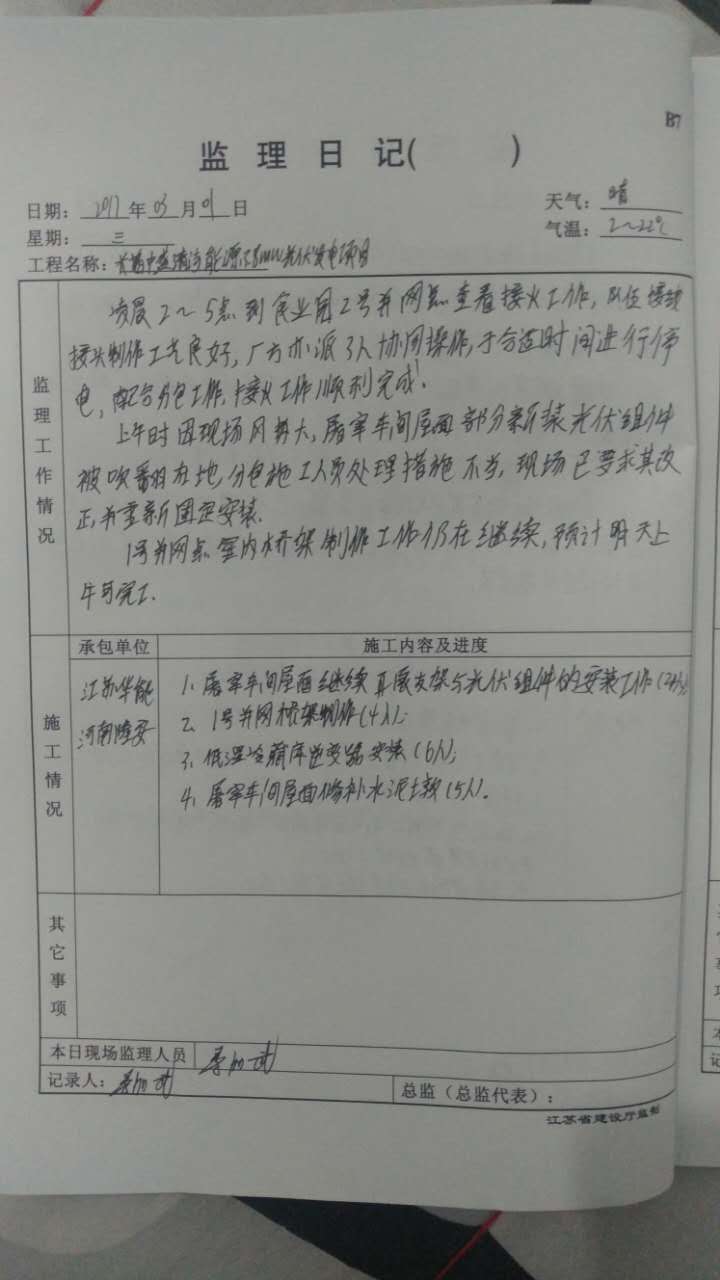 B7
监 理 日 记(        )
日期: 2017 年 03 月 01 日
天气: 晴
星期: 三
气温: 2~22℃
工程名称: 清洁能源 MW光伏发电项目
监理工作情况
凌晨2~5点到食业园2号并网点查看接火工作,
接头制作工艺良好,厂方亦派3人协同操作,于合适时间进行停
电,配合分包工作,接火工作顺利完成.
上午时因现场风势大,屠宰车间屋面部分新装光伏组件
被吹翻在地,分包施工人员处理措施不当,现场已要求其改
正,并重新固定安装.
1号并网点室内桥架制作工作仍在继续,预计明天上
午可完工.
施工情况
承包单位
施工内容及进度
江苏华能
河南
1、屠宰车间屋面继续 支架与光伏组件的安装工作
2、1号并网桥架制作(4人);
3、低温冷藏库逆变器安装(6人);
4、屠宰车间屋面修补水泥墩(5人).
其它事项
本日现场监理人员
记录人:
总监(总监代表):
江苏省建设厅监制